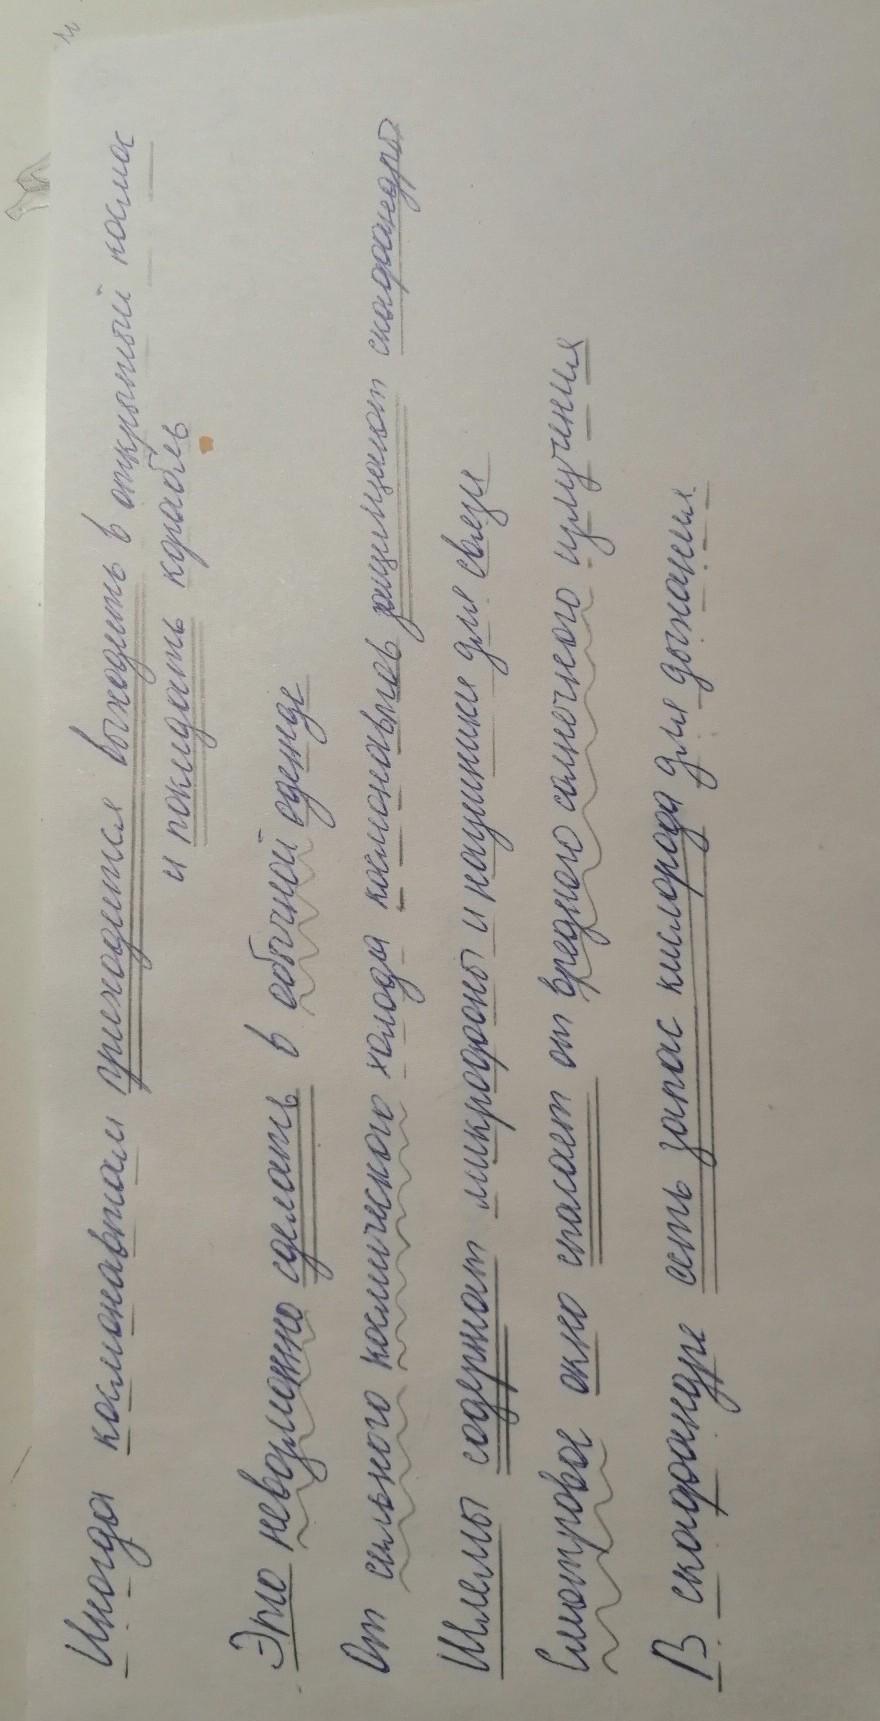 Иногда космонавтам приходится выходить в открытый космос
и покидать корабль
Это невозможно сделать в обычной одежде
От сильного космического холода космонавтов защищают скафандры
Шлемы содержат микрофоны и наушники для связи
Смотровое окно спасает от вредного солнечного излучения
В скафандре есть запас кислорода для дыхания